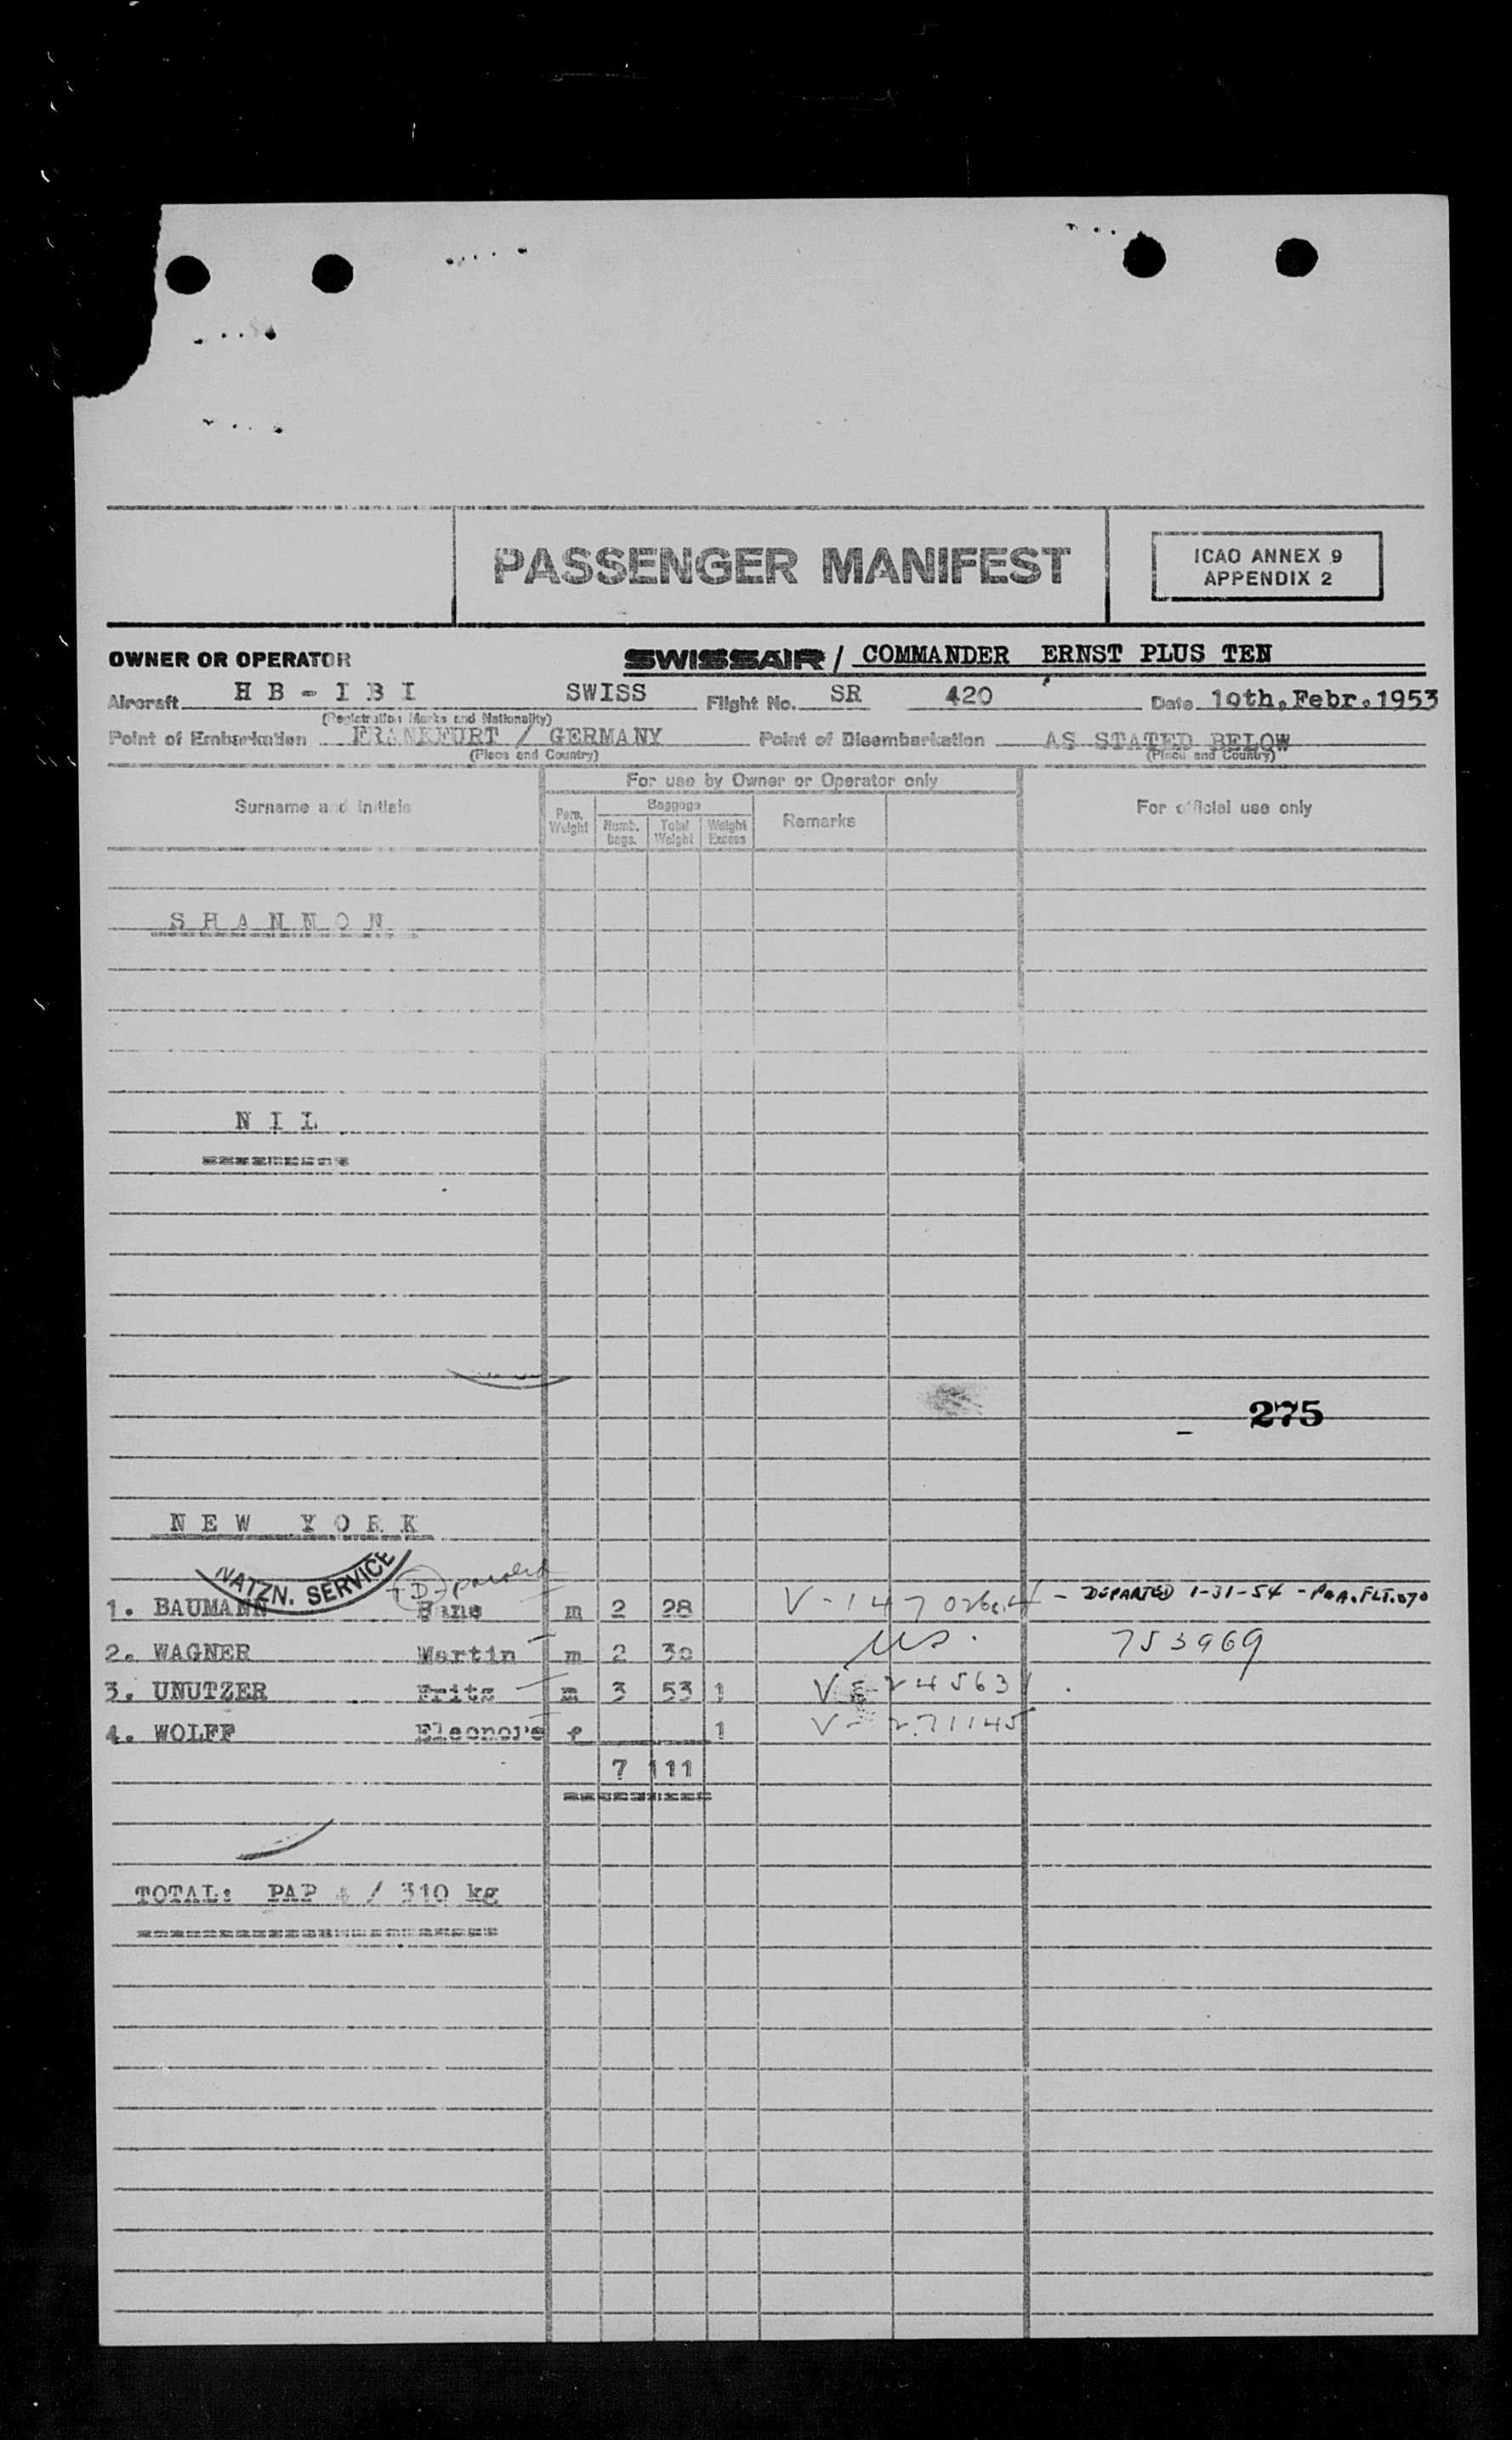 PASSENGER MANIFEST
ICAO ANNEX 9
APPENDIX 2
OWNER OR OPERATOR SWISSAIR / COMMANDER ERNST PLUS TEN
Aircraft H B - I B I SWISS Flight No. SR 420 Date 10th, Febr. 1953
(Registration Marks and Nationality)
Point of Embarkation FRANKFURT / GERMANY Point of Disembarkation AS STATED BELOW
(Place and Country) (Place and Country)
For use by Owner or Operator only
Surname and initials Pers. Weight Baggage Remarks For official use only
Numb. bags. Total Weight Weight Excess
S H A N N O N
N I L
275
N E W Y O R K
NATZN. SERVICE
D - paroled
1. BAUMANN Hans m 2 28 V - 147 - DEPARTED 1-31-54 - PAA. FLT. 070
2. WAGNER Martin m 2 30 US. 753969
3. UNUTZER Fritz m 3 53 1 V 245631
4. WOLFF Eleonore f 1 V - 271145
7 111
TOTAL: PAP 4 / 310 kg